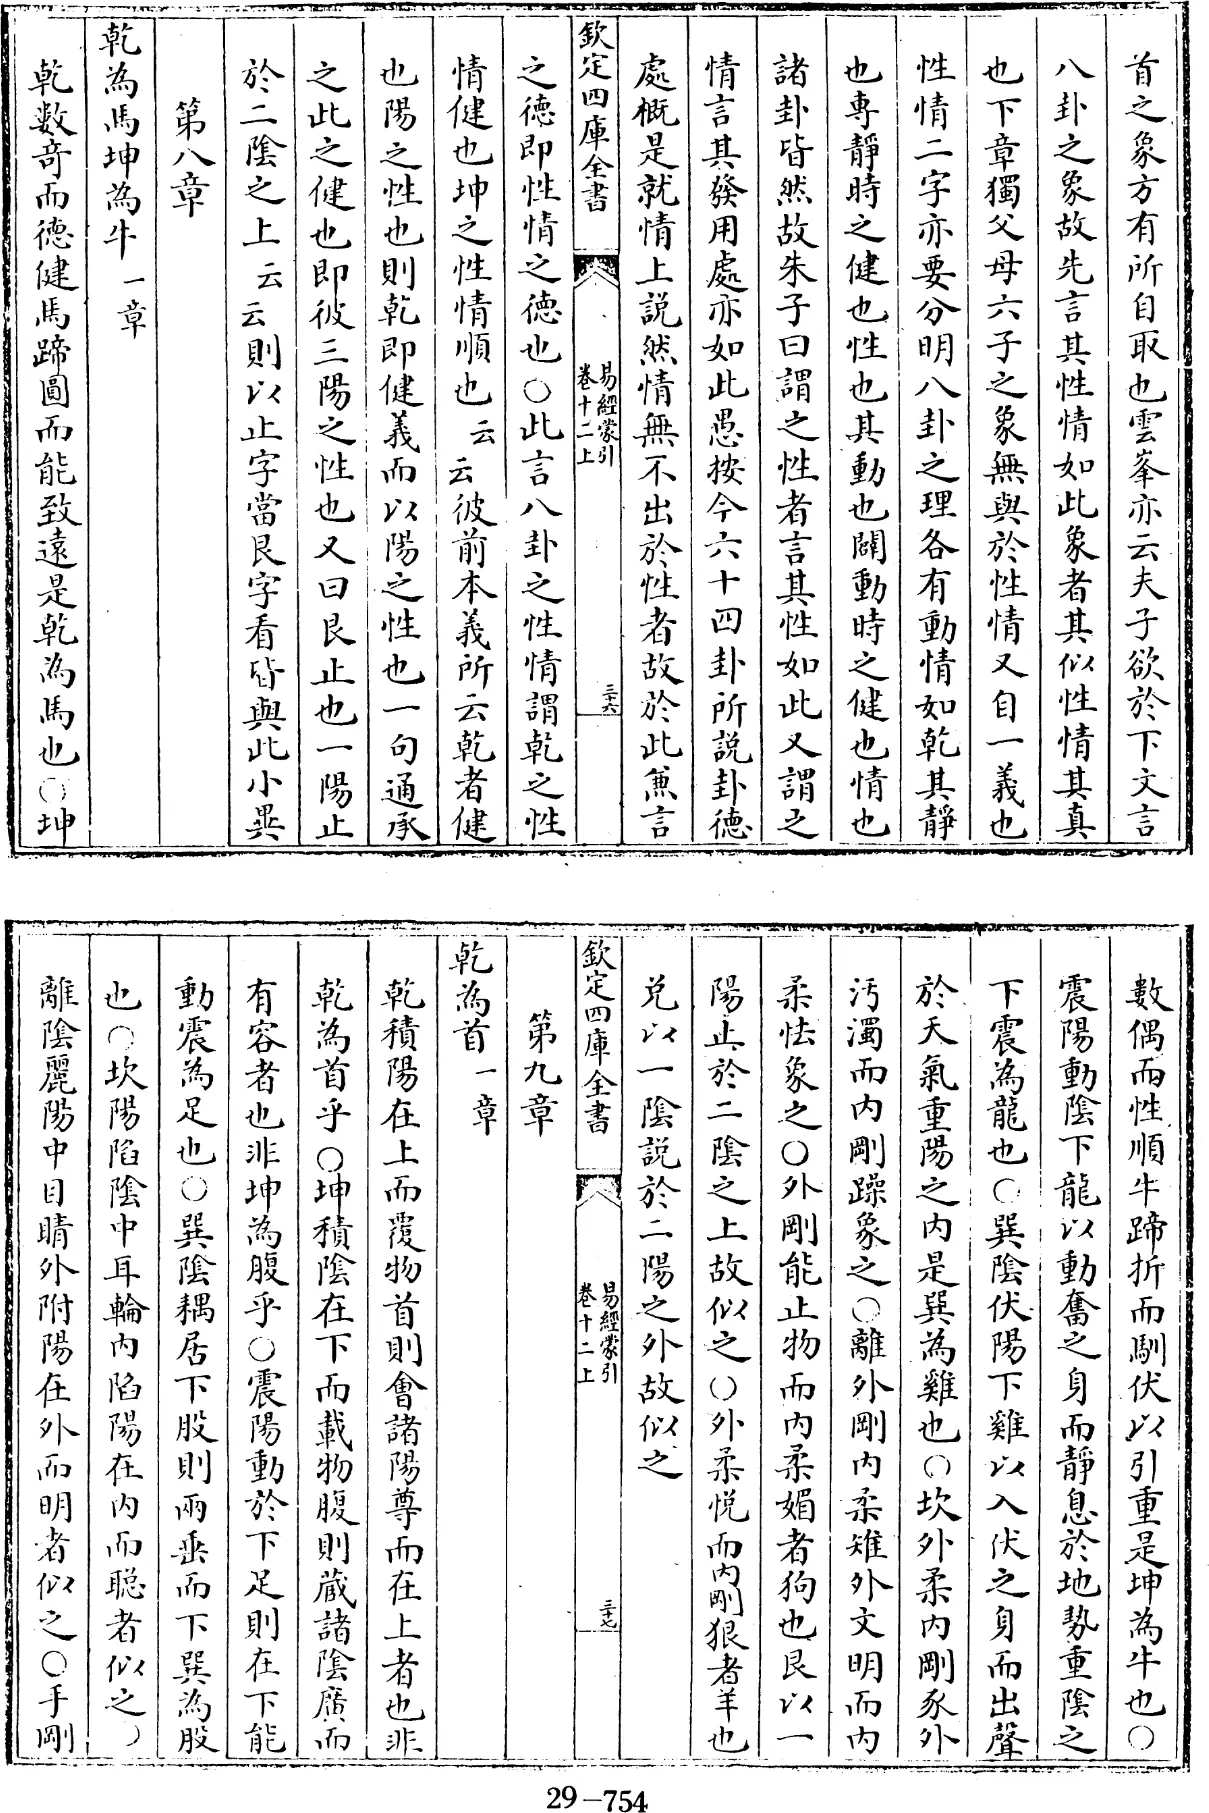 首之象方有所自取也雲峯亦云夫子欲於下文言
八卦之象故先言其性情如此象者其似性情其真
也下章獨父母六子之象無與於性情又自一義也
性情二字亦要分明八卦之理各有動情如乾其靜
也專靜時之健也性也其動也闢動時之健也情也
諸卦皆然故朱子曰謂之性者言其性如此又謂之
情言其發用處亦如此愚按今六十四卦所説卦德
處概是就情上説然情無不出於性者故於此兼言
欽定四庫全書
易經蒙引
卷十二上
三十六
之德即性情之德也○此言八卦之性情謂乾之性
情健也坤之性情順也云云彼前本義所云乾者健
也陽之性也則乾即健義而以陽之性也一句通承
之此之健也即彼三陽之性也又曰艮止也一陽止
於二陰之上云云則以止字當艮字看皆與此小異
第八章
乾為馬坤為牛一章
乾數奇而德健馬蹄圓而能致遠是乾為馬也○坤
數偶而性順牛蹄折而馴伏以引重是坤為牛也○
震陽動陰下龍以動奮之身而靜息於地勢重陰之
下震為龍也○巽陰伏陽下雞以入伏之身而出聲
於天氣重陽之内是巽為雞也○坎外柔内剛豕外
汚濁而内剛躁象之○離外剛内柔雉外文明而内
柔怯象之○外剛能止物而内柔媚者狗也艮以一
陽止於二陰之上故似之○外柔悦而内剛狠者羊也
兌以一陰説於二陽之外故似之
第九章
乾為首一章
欽定四庫全書
易經蒙引
卷十二上
三十七
乾積陽在上而覆物首則會諸陽尊而在上者也非
乾為首乎○坤積陰在下而載物腹則藏諸陰廣而
有容者也非坤為腹乎○震陽動於下足則在下能
動震為足也○巽陰耦居下股則兩垂而下巽為股
也○坎陽陷陰中耳輪内陷陽在内而聪者似之○
離陰麗陽中目睛外附陽在外而明者似之○手剛
29-754